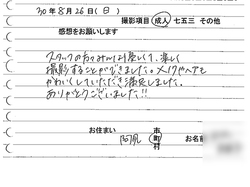 30年 8月 26日（日） 撮影項目 成人 七五三 その他
感想をお願いします
スタッフの方々みんなお優しくて、楽しく
撮影することができました。メイクやヘアも
かわいくしていただき満足しました。
ありがとうございました!!
お住まい 市 町 村
お名前